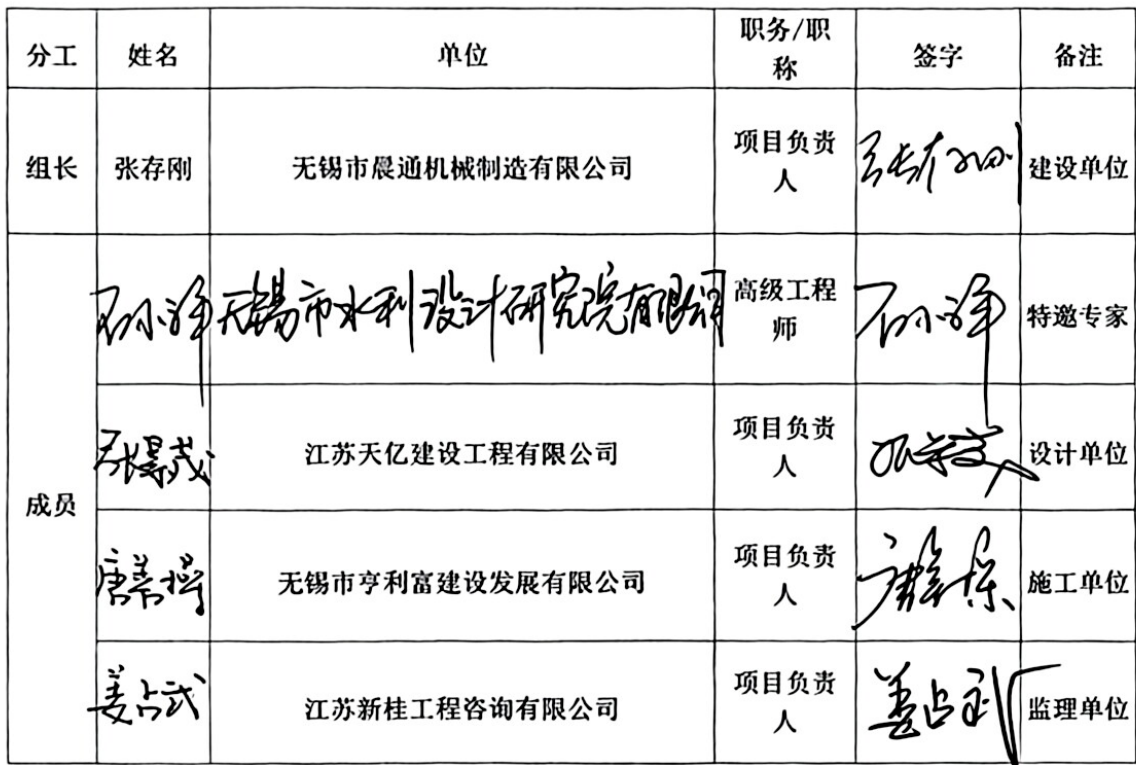 分工 姓名 单位 职务/职称 签字 备注
组长 张存刚 无锡市晨通机械制造有限公司 项目负责人 张存刚 建设单位
成员
无锡市水利设计研究院有限公司 高级工程师 特邀专家
江苏天亿建设工程有限公司 项目负责人 设计单位
无锡市亨利富建设发展有限公司 项目负责人 施工单位
姜占武 江苏新桂工程咨询有限公司 项目负责人 姜占武 监理单位